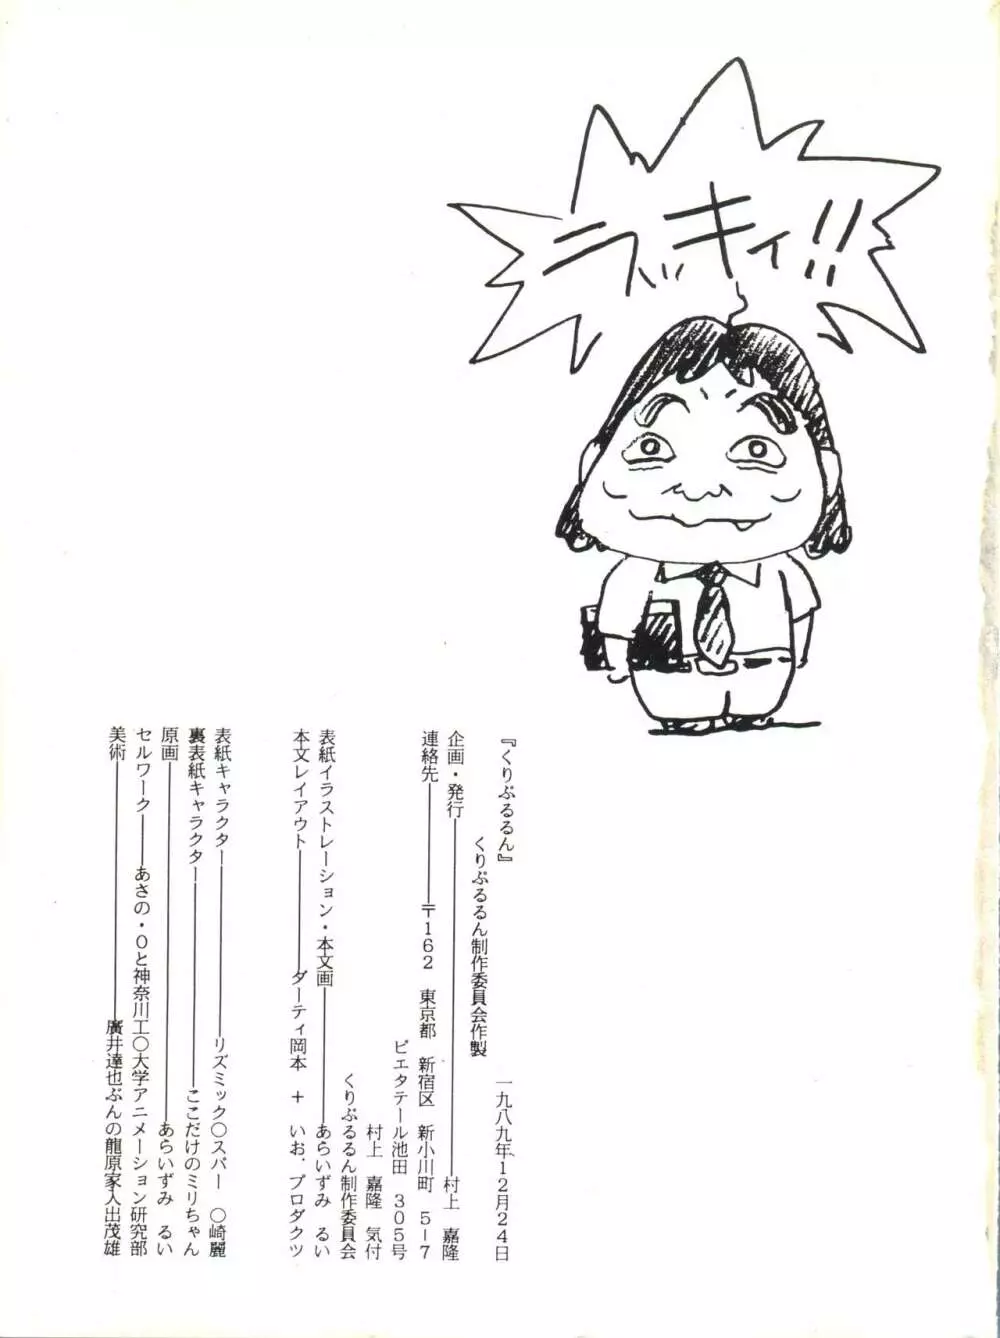 ラッキィ!!
『くりぷるるん』 一九八九年12月24日
くりぷるるん制作委員会作製
企画・発行――村上 嘉隆
連絡先――〒162 東京都 新宿区 新小川町 5-7
ピエタテール池田 305号
村上 嘉隆 気付
くりぷるるん制作委員会
表紙イラストレーション・本文画――あらいずみ るい
本文レイアウト――ダーティ岡本 + いお.プロダクツ
表紙キャラクター――リズミック○スパー ○崎麗
裏表紙キャラクター――ここだけのミリちゃん
原画――あらいずみ るい
セルワーク――あさの・Oと神奈川工○大学アニメーション研究部
美術――廣井達也ぶんの龍原家入出茂雄